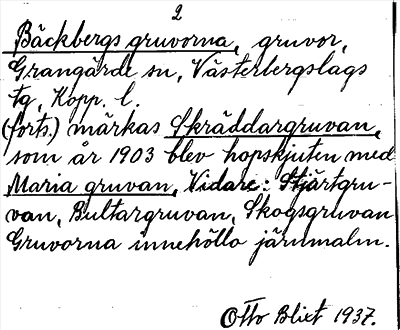 2
Bäckbergsgruvorna, gruvor,
Grangärde sn, Västerbergslags
tg, Kopp. l.
(forts.) märkas Skräddargruvan,
som år 1903 blev hopskjuten med
Maria gruvan, Vidare: Stjärtgru-
van, Bultargruvan, Skogsgruvan
Gruvorna innehöllo järnmalm.
Otto Blixt 1937.